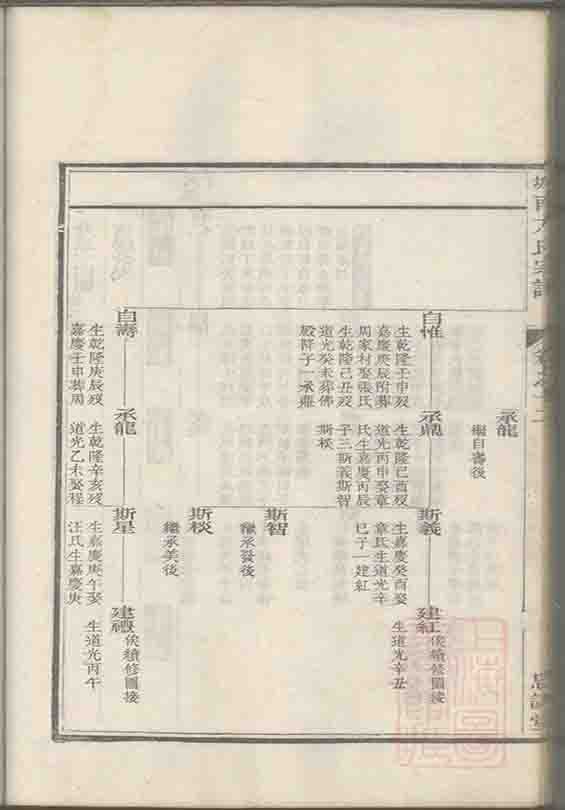 承龍
繼自壽後
自惟
生乾隆壬申歿
嘉慶庚辰附葬
周家村娶張氏
生乾隆己丑歿
道光癸未葬佛
殿阡子一承鼎
承鼎
生乾隆己酉歿
道光丙申娶章
氏生嘉慶丙辰
子三斯義斯智
斯棪
斯義
生嘉慶癸酉娶
章氏生道光辛
巳子一建紅
建紅
俟續修圖接
生道光辛丑
斯智
繼承發後
斯棪
繼承美後
自壽
生乾隆庚辰歿
嘉慶壬申葬周
承龍
生乾隆辛亥歿
道光乙未娶程
斯星
生嘉慶庚午娶
汪氏生嘉慶庚
建禮
俟續修圖接
生道光丙午